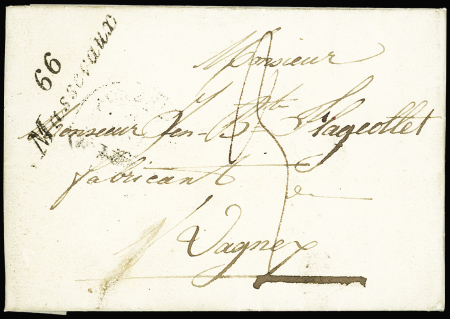 66
Massevaux
Monsieur
Monsieur Jn-Bte Flageollet
fabricant
à
Vagney